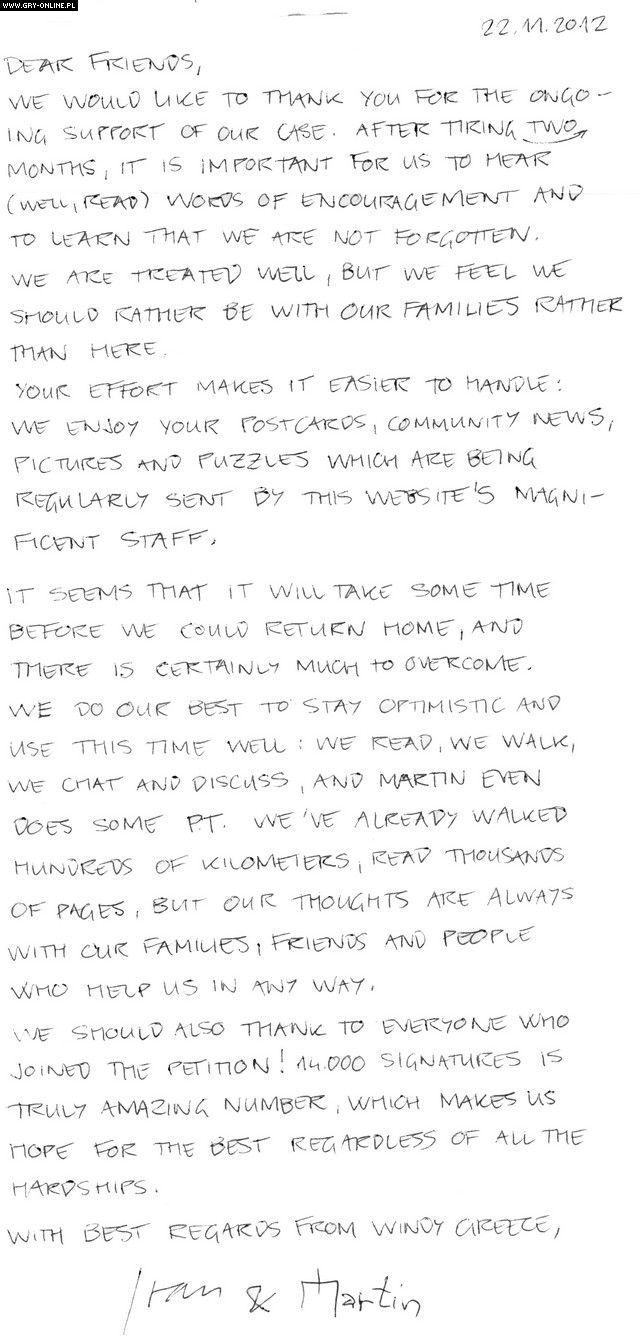 WWW.GRY-ONLINE.PL
22.11.2012
DEAR FRIENDS,
WE WOULD LIKE TO THANK YOU FOR THE ONGO-
ING SUPPORT OF OUR CASE. AFTER TIRING TWO
MONTHS, IT IS IMPORTANT FOR US TO HEAR
(WELL, READ) WORDS OF ENCOURAGEMENT AND
TO LEARN THAT WE ARE NOT FORGOTTEN.
WE ARE TREATED WELL, BUT WE FEEL WE
SHOULD RATHER BE WITH OUR FAMILIES RATHER
THAN HERE.
YOUR EFFORT MAKES IT EASIER TO HANDLE:
WE ENJOY YOUR POSTCARDS, COMMUNITY NEWS,
PICTURES AND PUZZLES WHICH ARE BEING
REGULARLY SENT BY THIS WEBSITE'S MAGNI-
FICENT STAFF.
IT SEEMS THAT IT WILL TAKE SOME TIME
BEFORE WE COULD RETURN HOME, AND
THERE IS CERTAINLY MUCH TO OVERCOME.
WE DO OUR BEST TO STAY OPTIMISTIC AND
USE THIS TIME WELL: WE READ, WE WALK,
WE CHAT AND DISCUSS, AND MARTIN EVEN
DOES SOME P.T. WE'VE ALREADY WALKED
HUNDREDS OF KILOMETERS, READ THOUSANDS
OF PAGES, BUT OUR THOUGHTS ARE ALWAYS
WITH OUR FAMILIES, FRIENDS AND PEOPLE
WHO HELP US IN ANY WAY.
WE SHOULD ALSO THANK TO EVERYONE WHO
JOINED THE PETITION! 14.000 SIGNATURES IS
TRULY AMAZING NUMBER, WHICH MAKES US
HOPE FOR THE BEST REGARDLESS OF ALL THE
HARDSHIPS.
WITH BEST REGARDS FROM WINDY GREECE,
Ivan & Martin